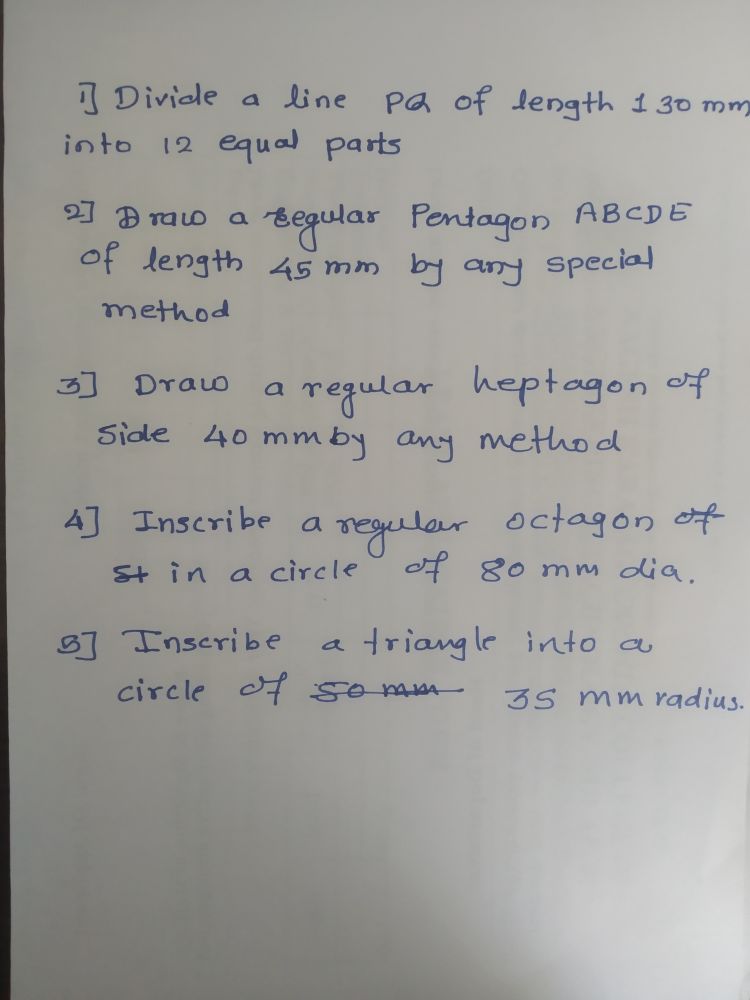 1] Divide a line PQ of length 130 mm
into 12 equal parts
2] Draw a regular Pentagon ABCDE
of length 45 mm by any special
method
3] Draw a regular heptagon of
side 40 mm by any method
4] Inscribe a regular octagon of
st in a circle of 80 mm dia.
5] Inscribe a triangle into a
circle of 50 mm 35 mm radius.